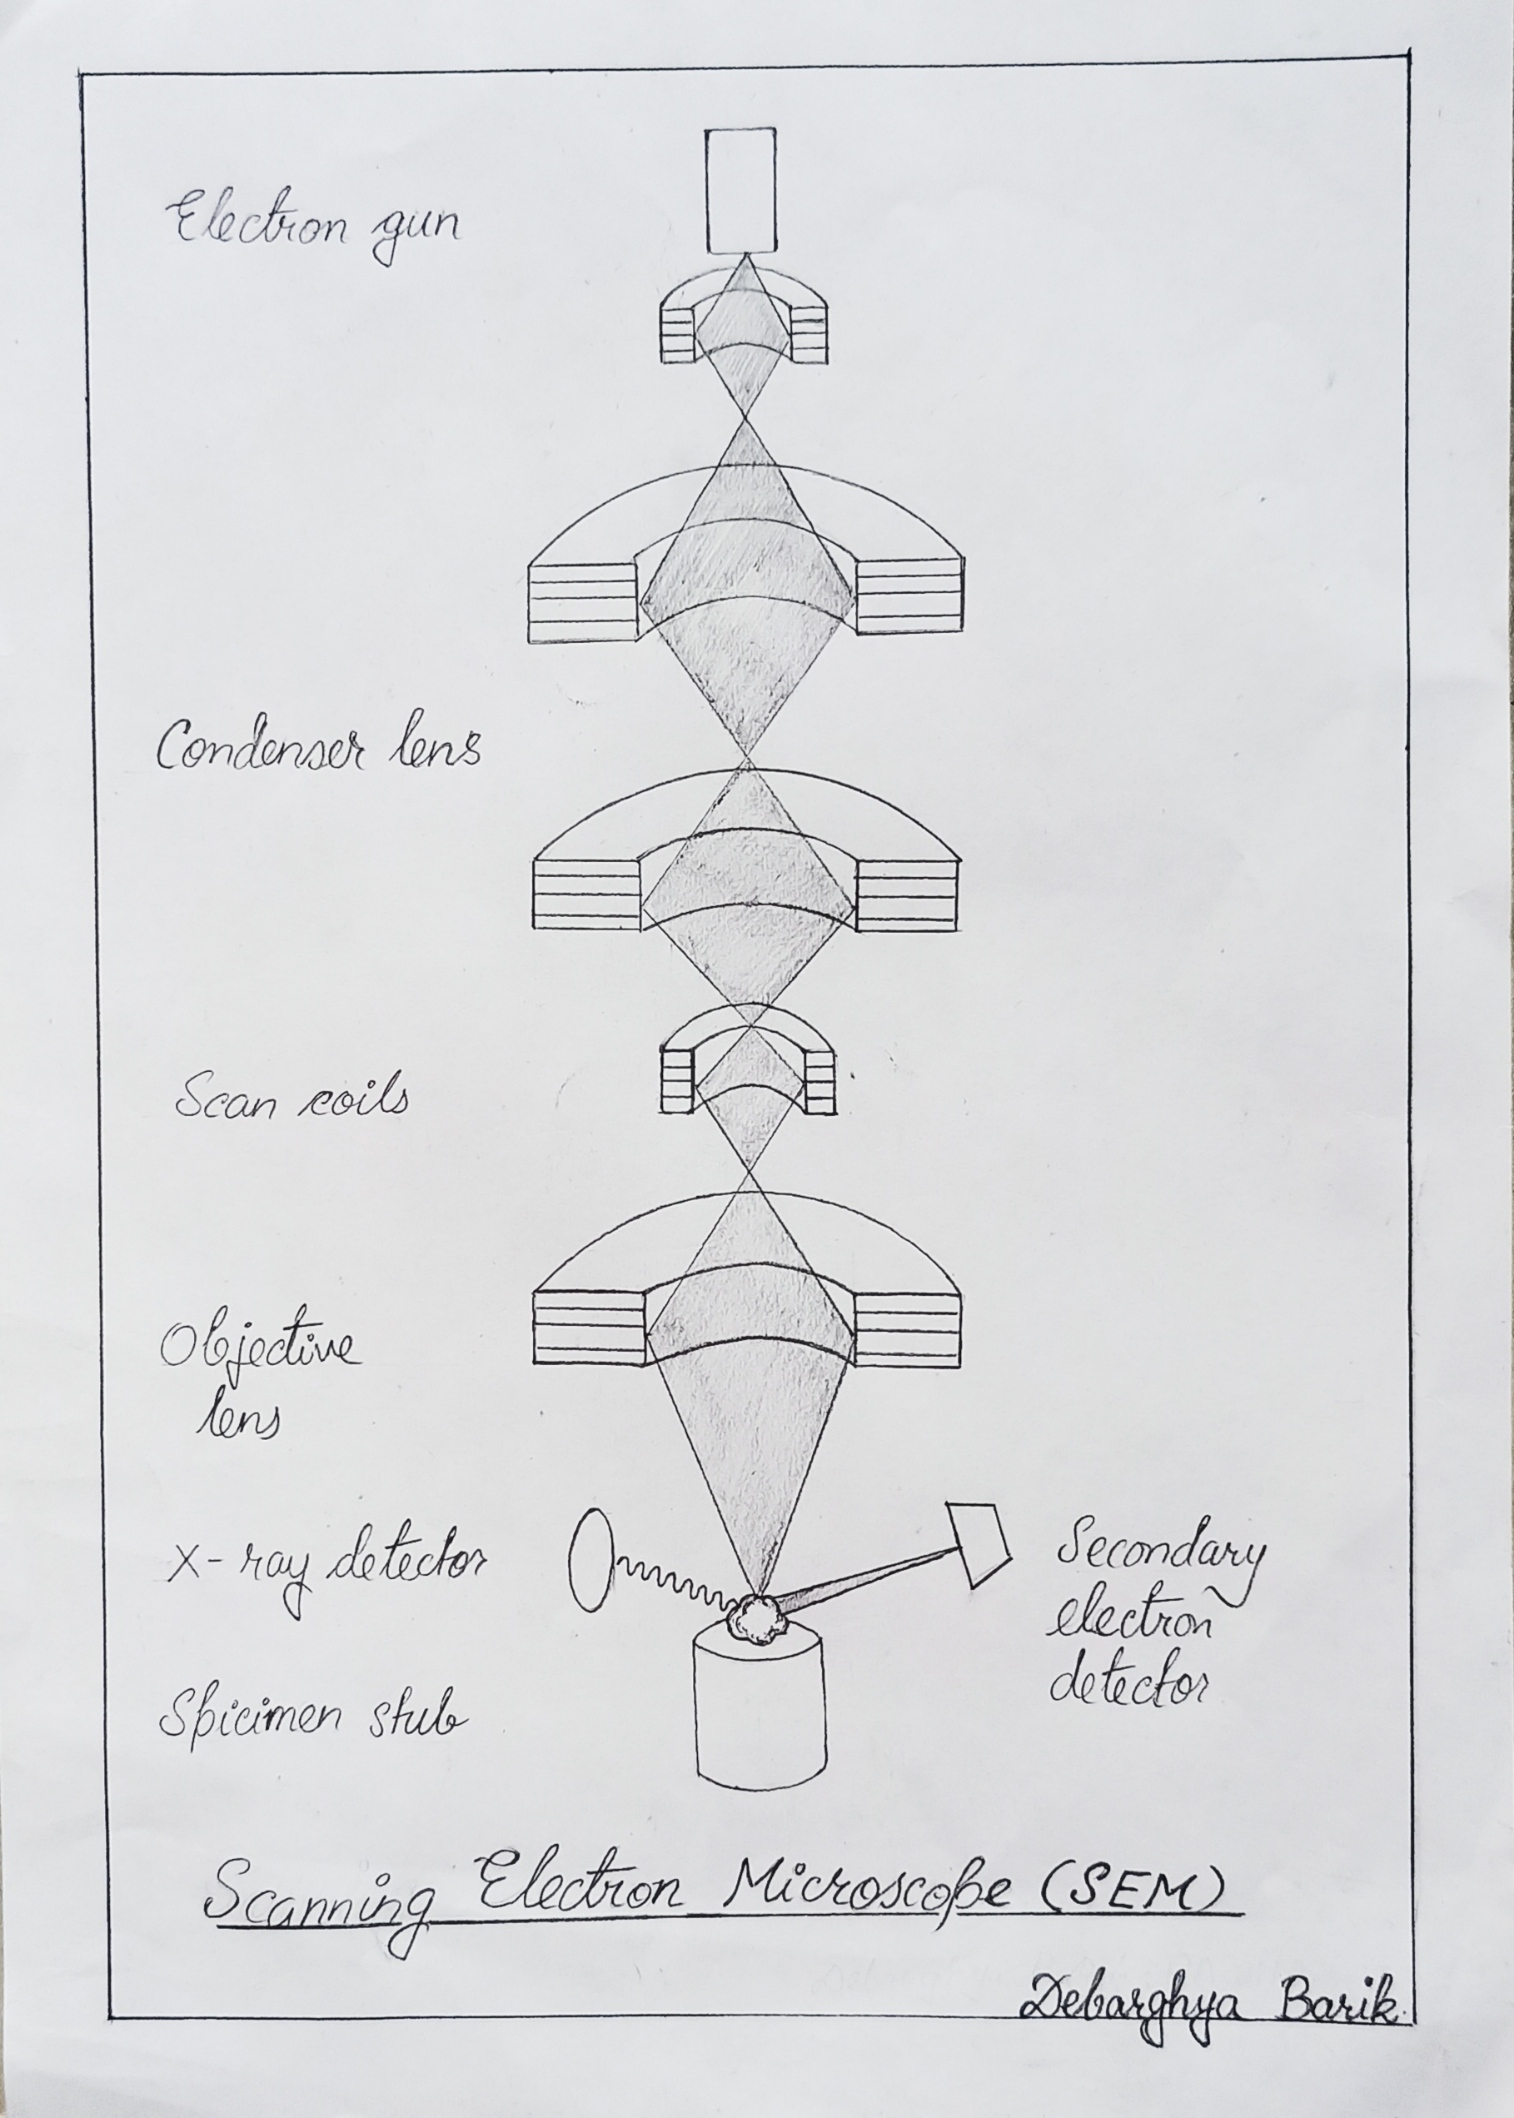 Electron gun
Condenser lens
Scan coils
Objective
lens
X-ray detector
Secondary
electron
detector
Spicimen stub
Scanning Electron Microscope (SEM)
Debarghya Barik